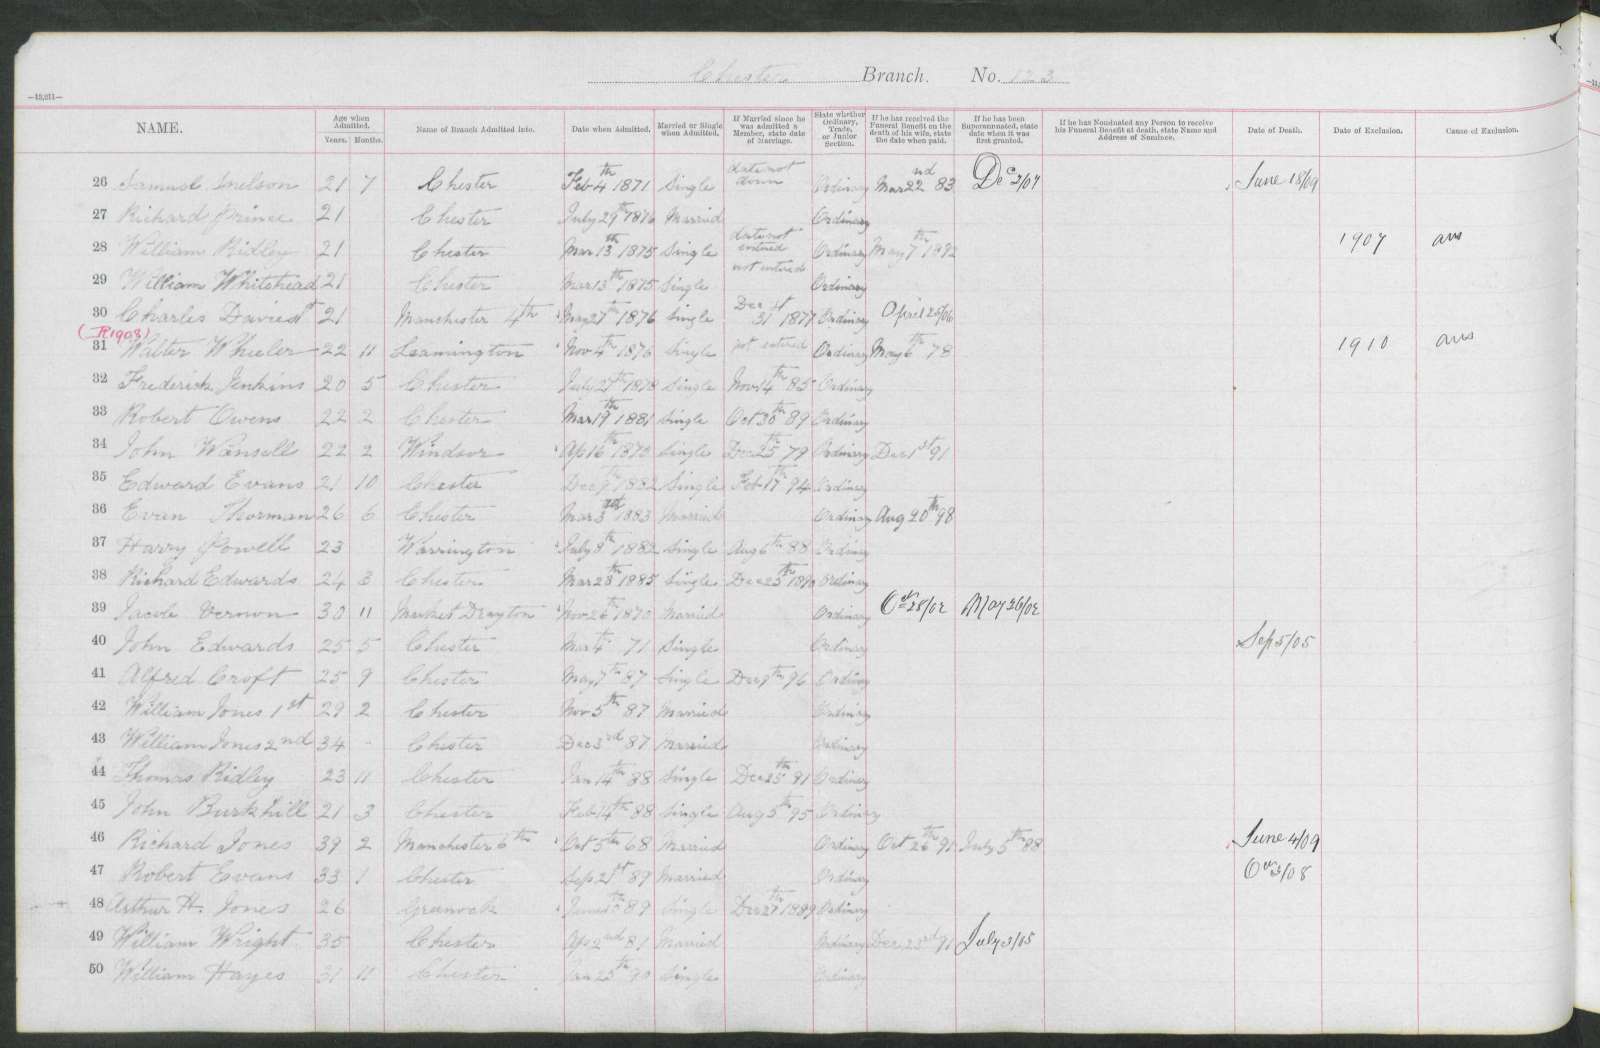 Chester Branch. No. 123
—15,211—
NAME. Age when Admitted. Years. Months. Name of Branch Admitted into. Date when Admitted. Married or Single when Admitted. If Married since he was admitted a Member, state date of Marriage. State whether Ordinary, Trade, or Junior Section. If he has received the Funeral Benefit on the death of his wife, state the date when paid. If he has been Superannuated, state date when it was first granted. If he has Nominated any Person to receive his Funeral Benefit at death, state Name and Address of Nominee. Date of Death. Date of Exclusion. Cause of Exclusion.
26 Samuel Snelson 21 7 Chester Feb 4th 1871 Single date not down Ordinary Mar 22nd 83 Dec 2/07 June 18/09
27 Richard Prince 21 Chester July 29th 1876 Married Ordinary
28 William Ridley 21 Chester Mar 13th 1875 Single date not entered Ordinary May 7th 1892 1907 ars
29 William Whitehead 21 Chester Mar 13th 1875 Single not entered Ordinary
30 Charles Davies 1st 21 Manchester 4th May 27th 1876 Single Dec 31st 1877 Ordinary April 25/06
(R1903)
31 Walter Wheeler 22 11 Leamington Nov 4th 1876 Single not entered Ordinary May 6th 78 1910 ars
32 Frederick Jenkins 20 5 Chester July 27th 1878 Single Nov 14th 85 Ordinary
33 Robert Owens 22 2 Chester Mar 19th 1881 Single Oct 30th 89 Ordinary
34 John Wansell 22 2 Windsor Ap 16th 1872 Single Dec 25th 79 Ordinary Dec 1st 91
35 Edward Evans 21 10 Chester Dec 9th 1882 Single Feb 17th 94 Ordinary
36 Evan Thorman 26 6 Chester Mar 3rd 1883 Married Ordinary Aug 20th 98
37 Harry Powell 23 Warrington July 8th 1882 Single Aug 6th 88 Ordinary
38 Richard Edwards 24 3 Chester Mar 28th 1885 Single Dec 25th 1890 Ordinary
39 Jacob Vernon 30 11 Market Drayton Nov 26th 1870 Married Ordinary Oct 28/02 May 26/02
40 John Edwards 25 5 Chester Mar 4th 71 Single Ordinary Sep 5/05
41 Alfred Croft 25 9 Chester May 7th 87 Single Dec 9th 96 Ordinary
42 William Jones 1st 29 2 Chester Nov 5th 87 Married Ordinary
43 William Jones 2nd 34 - Chester Dec 3rd 87 Married Ordinary
44 Thomas Ridley 23 11 Chester Jan 14th 88 Single Dec 25th 91 Ordinary
45 John Burkhill 21 3 Chester Feb 14th 88 Single Aug 5th 95 Ordinary
46 Richard Jones 39 2 Manchester 6th Oct 5th 68 Married Ordinary Oct 26th 91 July 5th 88 June 4/09
47 Robert Evans 33 1 Chester Sep 21st 89 Married Ordinary 3/08
48 Arthur H. Jones 26 Greenock 89 Single Dec 27th 1889 Ordinary
49 William Wright 35 Chester Ap 2nd 81 Married Ordinary Dec 23rd 91 July 3/05
50 William Hayes 31 11 Chester Jan 25th 90 Single Ordinary